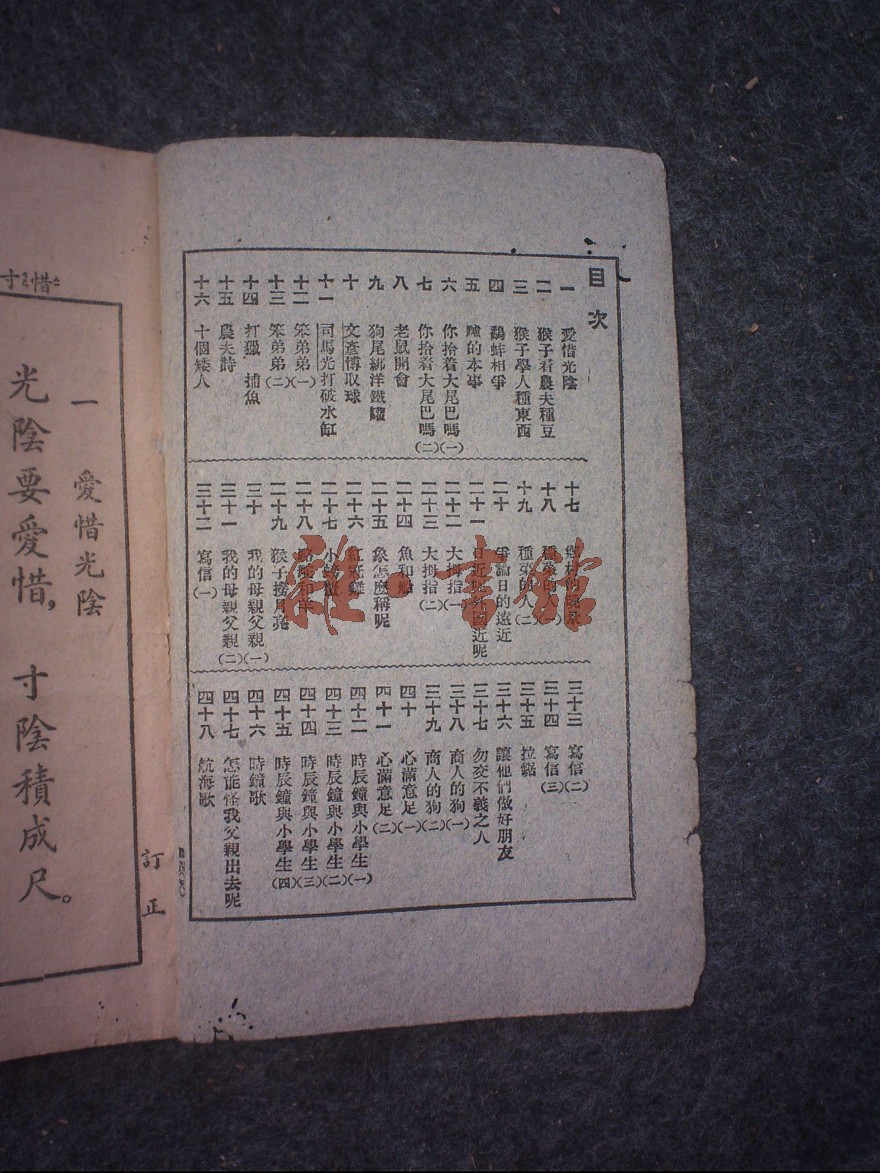 目次
一 愛惜光陰
二 猴子看農夫種豆
三 猴子學人種東西
四 鷸蚌相爭
五 的本事
六 你拾着大尾巴嗎(一)
七 你拾着大尾巴嗎(二)
八 老鼠開會
九 狗尾綁洋鐵罐
十 文彥博取球
十一 司馬光打破水缸
十二 笨弟弟(一)
十三 笨弟弟(二)
十四 打獵 捕魚
十五 農夫詩
十六 十個矮人
十七 鄉村的
十八 種的人(一)
十九 種的人(二)
二十 爭論日的遠近
二十一 日近呢
二十二 大拇指(一)
二十三 大拇指(二)
二十四 魚和
二十五 象怎麼稱呢
二十六 紅冠雞
二十七 小螃蟹
二十八 和羊
二十九 猴子撈月亮
三十 我的母親父親(一)
三十一 我的母親父親(二)
三十二 寫信(一)
三十三 寫信(二)
三十四 寫信(三)
三十五 拉鋸
三十六 讓他們做好朋友
三十七 勿交不義之人
三十八 商人的狗(一)
三十九 商人的狗(二)
四十 心滿意足(一)
四十一 心滿意足(二)
四十二 時辰鐘與小學生(一)
四十三 時辰鐘與小學生(二)
四十四 時辰鐘與小學生(三)
四十五 時辰鐘與小學生(四)
四十六 時鐘歌
四十七 怎能怪我父親出去呢
四十八 航海歌
訂正
惜 寸
一 愛惜光陰
光陰要愛惜，寸陰積成尺。
雅·書館